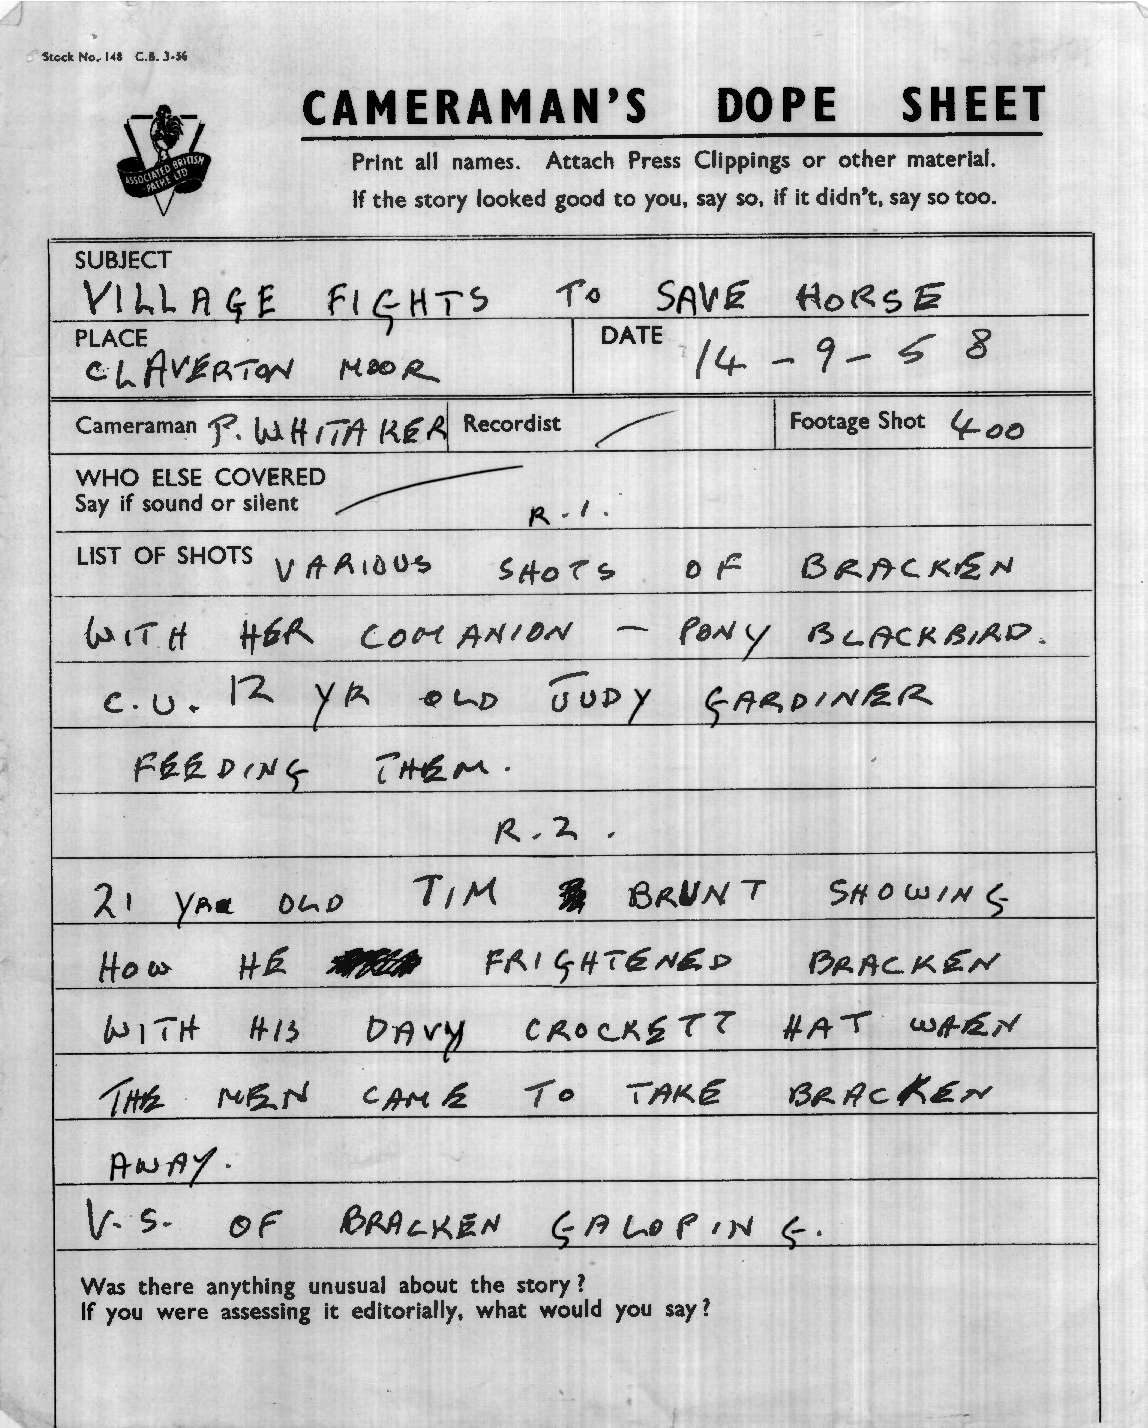 Stock No. 148 C.B. 3-56
CAMERAMAN'S DOPE SHEET
ASSOCIATED BRITISH
PATHE LTD
Print all names. Attach Press Clippings or other material.
If the story looked good to you, say so, if it didn't, say so too.
SUBJECT
VILLAGE FIGHTS TO SAVE HORSE
PLACE
CLAVERTON MOOR
DATE 14-9-58
Cameraman P. WHITAKER Recordist Footage Shot 400
WHO ELSE COVERED
Say if sound or silent
R.1.
LIST OF SHOTS VARIOUS SHOTS OF BRACKEN
WITH HER COMANION - PONY BLACKBIRD.
C.U. 12 YR OLD JUDY GARDINER
FEEDING THEM.
R.2.
21 YRS OLD TIM BRUNT SHOWING
HOW HE FRIGHTENED BRACKEN
WITH HIS DAVY CROCKETT HAT WHEN
THE MEN CAME TO TAKE BRACKEN
AWAY.
V.S. OF BRACKEN GALOPING.
Was there anything unusual about the story?
If you were assessing it editorially, what would you say?